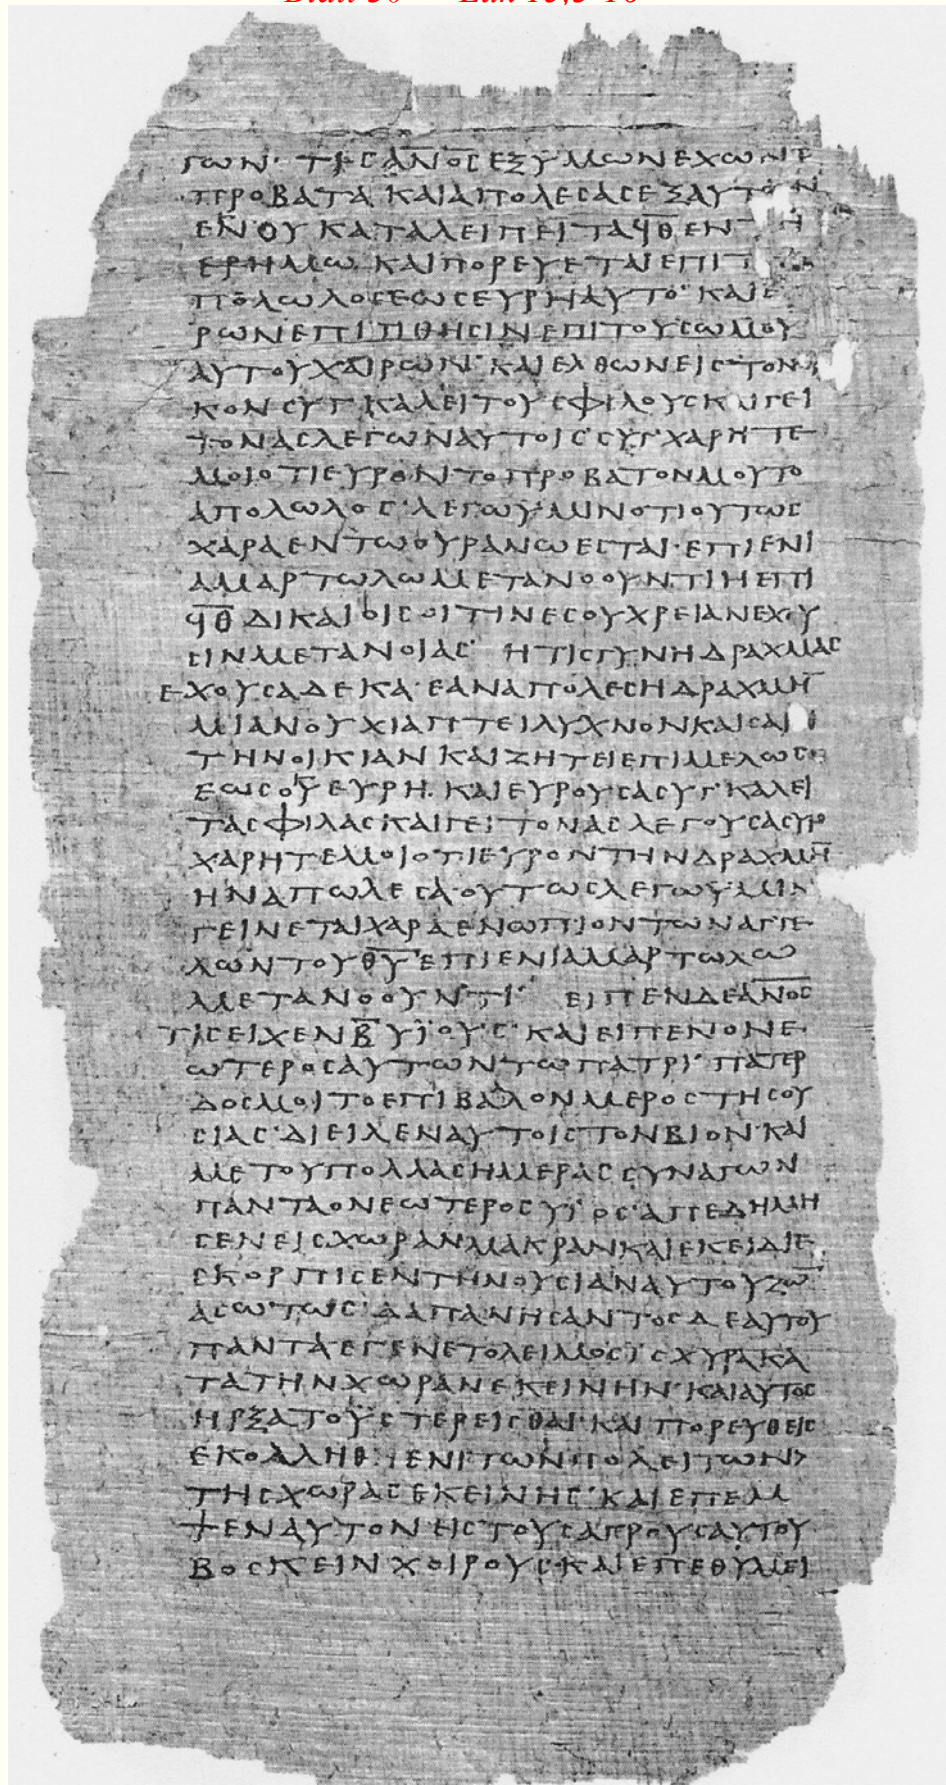 Blatt 50 Luk 15,3-16
ΓΩΝ· ΤΙϹ ΑΝ̅Ο̅Ϲ ΕΞ ΥΜΩΝ ΕΧΩΝ
ΠΕΡΟΒΑΤΑ ΚΑΙ ΑΠΟΛΕϹΑϹ ΕΞ ΑΥΤΩΝ
ΕΝ ΟΥ ΚΑΤΑΛΕΙΠΕΙ ΤΑ Ϟ̅Θ̅ ΕΝ ΤΗ
ΕΡΗΜΩ ΚΑΙ ΠΟΡΕΥΕΤΑΙ ΕΠΙ Τ
ΠΟΛΩΛΟϹ ΕΩϹ ΕΥΡΗ ΑΥΤΟ· ΚΑΙ Ε
ΡΩΝ ΕΠΙΤΙΘΗϹΙΝ ΕΠΙ ΤΟΥϹ ΩΜΟΥ
ΑΥΤΟΥ ΧΑΙΡΩΝ· ΚΑΙ ΕΛΘΩΝ ΕΙϹ ΤΟΝ
ΚΟΝ ϹΥΓΚΑΛΕΙ ΤΟΥϹ ΦΙΛΟΥϹ ΚΑΙ ΓΕΙ
ΤΟΝΑϹ ΛΕΓΩΝ ΑΥΤΟΙϹ· ϹΥΓΧΑΡΗΤΕ
ΜΟΙ ΟΤΙ ΕΥΡΟΝ ΤΟ ΠΡΟΒΑΤΟΝ ΜΟΥ ΤΟ
ΑΠΟΛΩΛΟϹ· ΛΕΓΩ ΥΜΙΝ ΟΤΙ ΟΥΤΩϹ
ΧΑΡΑ ΕΝ ΤΩ ΟΥΡΑΝΩ ΕϹΤΑΙ· ΕΠΙ ΕΝΙ
ΑΜΑΡΤΩΛΩ ΜΕΤΑΝΟΟΥΝΤΙ Η ΕΠΙ
Ϟ̅Θ̅ ΔΙΚΑΙΟΙϹ ΟΙΤΙΝΕϹ ΟΥ ΧΡΕΙΑΝ ΕΧΟΥ
ϹΙΝ ΜΕΤΑΝΟΙΑϹ· Η ΤΙϹ ΓΥΝΗ ΔΡΑΧΜΑϹ
ΕΧΟΥϹΑ ΔΕΚΑ· ΕΑΝ ΑΠΟΛΕϹΗ ΔΡΑΧΜΗ̅
ΜΙΑΝ ΟΥΧΙ ΑΠΤΕΙ ΛΥΧΝΟΝ ΚΑΙ ϹΑΙ
ΤΗΝ ΟΙΚΙΑΝ ΚΑΙ ΖΗΤΕΙ ΕΠΙΜΕΛΩϹ
ΕΩϹ ΟΥ ΕΥΡΗ· ΚΑΙ ΕΥΡΟΥϹΑ ϹΥΓΚΑΛΕΙ
ΤΑϹ ΦΙΛΑϹ ΚΑΙ ΓΕΙΤΟΝΑϹ ΛΕΓΟΥϹΑ ϹΥΝ
ΧΑΡΗΤΕ ΜΟΙ ΟΤΙ ΕΥΡΟΝ ΤΗΝ ΔΡΑΧΜΗ̅
ΗΝ ΑΠΩΛΕϹΑ· ΟΥΤΩϹ ΛΕΓΩ ΥΜΙΝ
ΓΕΙΝΕΤΑΙ ΧΑΡΑ ΕΝΩΠΙΟΝ ΤΩΝ ΑΓΓΕ
ΛΩΝ ΤΟΥ Θ̅Υ̅ ΕΠΙ ΕΝΙ ΑΜΑΡΤΩΛΩ
ΜΕΤΑΝΟΟΥΝΤΙ· ΕΙΠΕΝ ΔΕ ΑΝ̅Ο̅Ϲ
ΤΙϹ ΕΙΧΕΝ Β̅ ΥΪΟΥϹ· ΚΑΙ ΕΙΠΕΝ Ο ΝΕ
ΩΤΕΡΟϹ ΑΥΤΩΝ ΤΩ ΠΑΤΡΙ· ΠΑΤΕΡ
ΔΟϹ ΜΟΙ ΤΟ ΕΠΙΒΑΛΟΝ ΜΕΡΟϹ ΤΗϹ ΟΥ
ϹΙΑϹ· ΔΙΕΙΛΕΝ ΑΥΤΟΙϹ ΤΟΝ ΒΙΟΝ· ΚΑΙ
ΜΕΤ ΟΥ ΠΟΛΛΑϹ ΗΜΕΡΑϹ ϹΥΝΑΓΩΝ
ΠΑΝΤΑ Ο ΝΕΩΤΕΡΟϹ ΥΪΟϹ· ΑΠΕΔΗΜΗ
ϹΕΝ ΕΙϹ ΧΩΡΑΝ ΜΑΚΡΑΝ ΚΑΙ ΕΚΕΙ ΔΙΕ
ϹΚΟΡΠΙϹΕΝ ΤΗΝ ΟΥϹΙΑΝ ΑΥΤΟΥ ΖΩ̅
ΑϹΩΤΩϹ· ΔΑΠΑΝΗϹΑΝΤΟϹ Δ ΕΑΥΤΟΥ
ΠΑΝΤΑ ΕΓΕΝΕΤΟ ΛΕΙΜΟϹ ΪϹΧΥΡΑ ΚΑ
ΤΑ ΤΗΝ ΧΩΡΑΝ ΕΚΕΙΝΗΝ· ΚΑΙ ΑΥΤΟϹ
ΗΡΞΑΤΟ ΫϹΤΕΡΕΙϹΘΑΙ· ΚΑΙ ΠΟΡΕΥΘΕΙϹ
ΕΚΟΛΛΗΘΗ ΕΝΙ ΤΩΝ ΠΟΛΕΙΤΩΝ>
ΤΗϹ ΧΩΡΑϹ ΕΚΕΙΝΗϹ· ΚΑΙ ΕΠΕΜ
ΨΕΝ ΑΥΤΟΝ ΕΙϹ ΤΟΥϹ ΑΓΡΟΥϹ ΑΥΤΟΥ
ΒΟϹΚΕΙΝ ΧΟΙΡΟΥϹ· ΚΑΙ ΕΠΕΘΥΜΕΙ